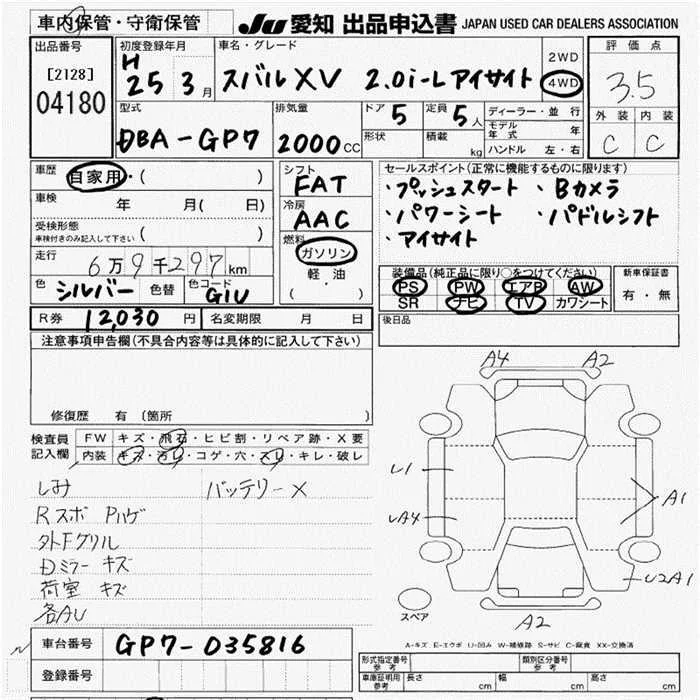 車内保管・守衛保管
JU 愛知 出品申込書 JAPAN USED CAR DEALERS ASSOCIATION
出品番号 [2128] 04180
初度登録年月 H 25 3月
車名・グレード スバルXV 2.0i-Lアイサイト
2WD 4WD
評価点 3.5
外装 内装
C C
型式 DBA-GP7
排気量 2000CC
ドア 5 定員 5人
形状 積載 kg
ディーラー・並行
モデル年式 年
ハンドル 左・右
車歴 自家用・( )
車検 年 月( 日)
受検形態 車検付きのみ記入して下さい ( )
走行 6万9千297km
色 シルバー 色替 色コード G1U
シフト FAT
冷房 AAC
燃料 ガソリン
軽油
( ・ )
セールスポイント(正常に機能するものに限ります)
・プッシュスタート ・Bカメラ
・パワーシート ・パドルシフト
・アイサイト
装備品(純正品に限り○をつけてください)
PS PW エアB AW
SR ナビ TV カワシート
新車保証書
有・無
R券 12,030円 名変期限 月 日
後日品
注意事項申告欄(不具合内容等は具体的に記入して下さい)
修復歴 有(箇所 )
検査員記入欄
FW キズ・飛石・ヒビ割・リペア跡・X要
内装 キズ・汚レ・コゲ・穴・スレ・キレ・破レ
しみ バッテリーX
Rスポ Pハゲ
外Fグリル
Dミラー キズ
荷室 キズ
各AU
A4 A2
U1
UA4
A1
U2A1
A2
スペア
A-キズ E-エクボ U-凹み W-補修跡 S-サビ C-腐食 XX-交換済
車台番号 GP7-035816
登録番号
形式指定番号 参考 類別区分番号 参考
車庫証明用 参考 長さ cm 幅 cm 高さ cm